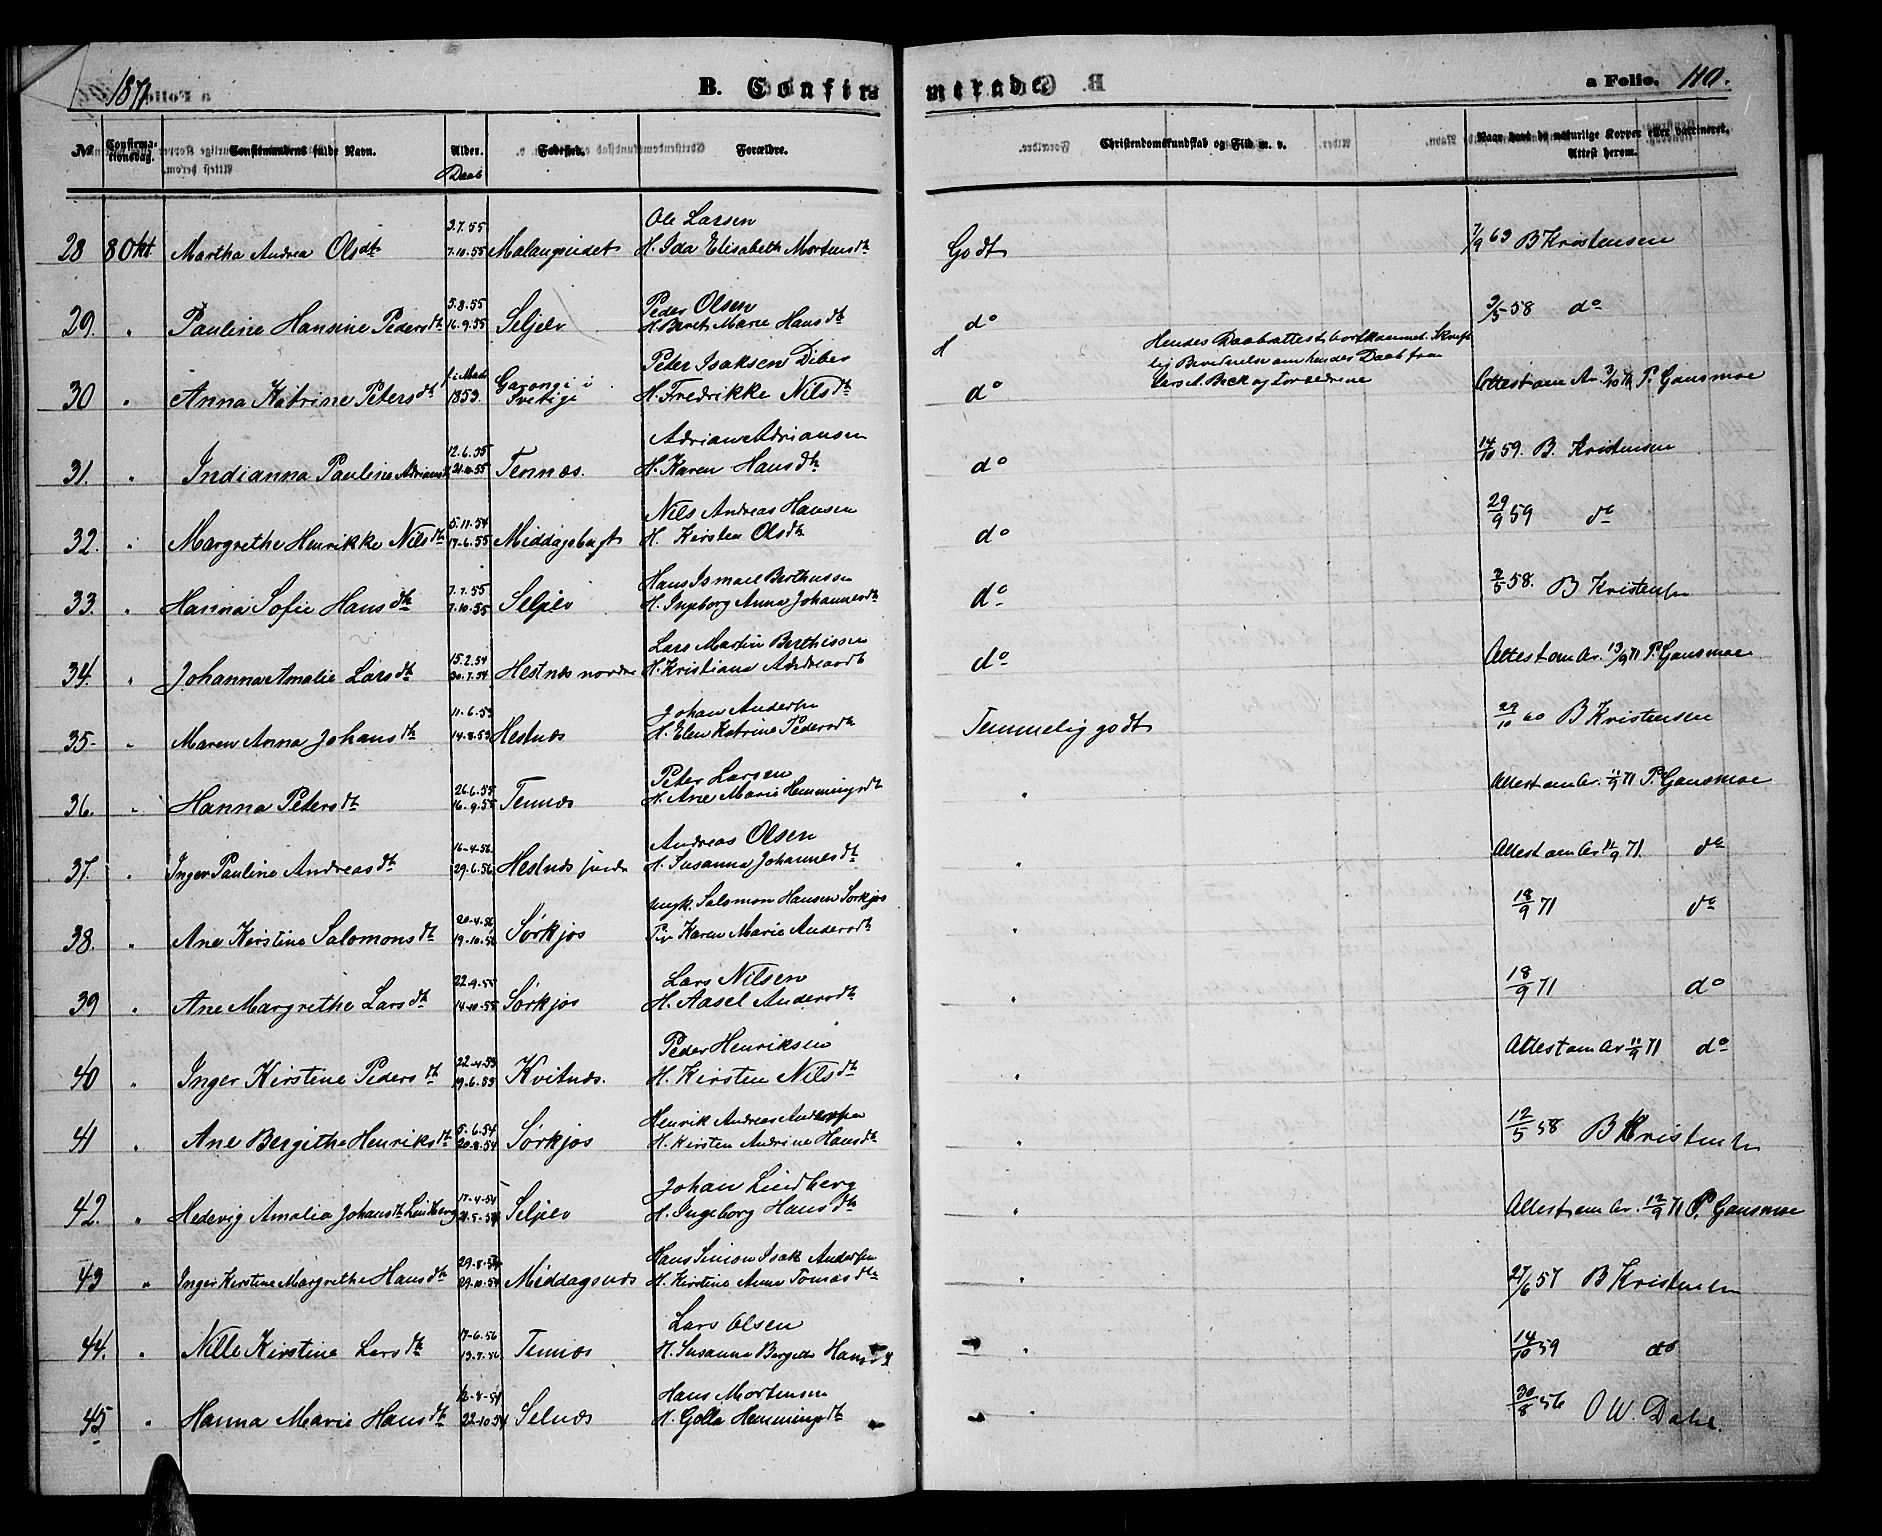 1871
B. Confirmerede.
a Folio. 110.
No
Confirmationsdag.
Confirmandens fulde Navn.
Alder.
Daab
Fødested.
Forældre.
Christendomskundskab og Flid m. v.
Naar havt de naturlige Kopper eller vaccineret.
Attest herom.
28 8 Okt Martha Andrea Olsdtr 3.7.55 7.10.55 Malangseidet Ole Larsen H. Ida Elisabeth Mortensdtr Godt 7/9 63 B Kristensen
29. " Pauline Hansine Pedersdtr 3.8.55 16.9.55 Seljelv Peder Olsen H. Beret Marie Hansdtr do 3/5 58 do
Hendes Daabsattest bortkommet.
30 " Anna Katrine Petersdtr 1853. i Peter Isaksen H. Fredrikke Nilsdtr do Attest om Av. P. Gausmoe
31. " Indianna Pauline Adriansdtr 12.6.55 21.10.55 Tennæs. Adrian Adriansen H. Karen Hansdtr do 14/10 59. B. Kristensen
32. " Margrethe Henrikke Nilsdtr 5.11.54 17.6.55 Middagsbugt Nils Andreas Hansen H. Kirsten Olsdtr do 29/9 59 do
33. " Hanna Sofie Hansdtr 7.7.55 7.10.55 Seljelv Hans Ismael Berthussen H. Ingeborg Anna Johannesdtr do 3/5 58. B Kristensen
34. " Johanna Amalie Larsdtr 15.2.54 30.7.54 Hestnæs nordre Lars Martin Berthissen H. Kristiana Andreasdt do Attest om Av. 13/9 71 P. Gausmoe
35- " Maren Anna Johansdtr 11-6.53 14.8.53 Hestnæs Johan Andersen H. Elen Katrine Pedersdtr Temmelig godt 29/10 60 B Kristensen
36. " Hanna Petersdtr 26.6.55 16.9.55 Tennæs Peter Larsen H. Ane Marie Hemmingsdt " Attest om Av. 11/9 71 P. Gausmoe
37. " Inger Pauline Andreasdtr 16-4.56 29.6.56 Hestnæs Andreas Olsen H. Susanna Johannesdtr " Attest om Av 11/9 71. do
38. " Ane Kirstine Salomonsdtr 20-4.56 19-10.56 Sørkjos Ungk. Salomon Hansen Sørkjos Pig. Karen Marie Andersdtr " 18/9 71 do
39 " Ane Margrethe Larsdtr 22.9.55 14-10-55 Sørkjos Lars Nilsen H. Aasel Andersdtr " 18/9 71 do
40 " Inger Kirstine Pedersdtr 22-4.53 19.6.53 Kvitnæs. Peder Henriksen H. Kirsten Nilsdtr " Attest om Av 11/9 71 do
41 " Ane Bergithe Henriksdtr 5.6.54 20.8.54 Sørkjos Henrik Andreas Andersen H. Kirsten Andrine Hansdtr " 12/5 58 B Kristensen
42. " Hedevig Amalia Johansdtr Lindberg 17-4-54 21.5-54 Seljelv Johan Lindberg H. Ingeborg Hansdtr " Attest om Av. 12/9 71 P. Gausmoe
43 " Inger Kirstine Margrethe Hansdtr 29.8.54 29.10.54 Middagsnæs Hans Simon Isak Andersen H. Kirstine Anna Tomasdtr " 27/6 57 B Kristensen
44. " Nille Kirstine Larsdtr 17-6.56 13.7.56 Tennæs Lars Olsen H. Susanna Bergete Hansdt " 14/10 59 do
45 " Hanna Marie Hansdtr 12-4-54 22.10.54 Selnæs Hans Mortensen H. Golla Hemmingsdt " 30/8 56 O W. Dahl.